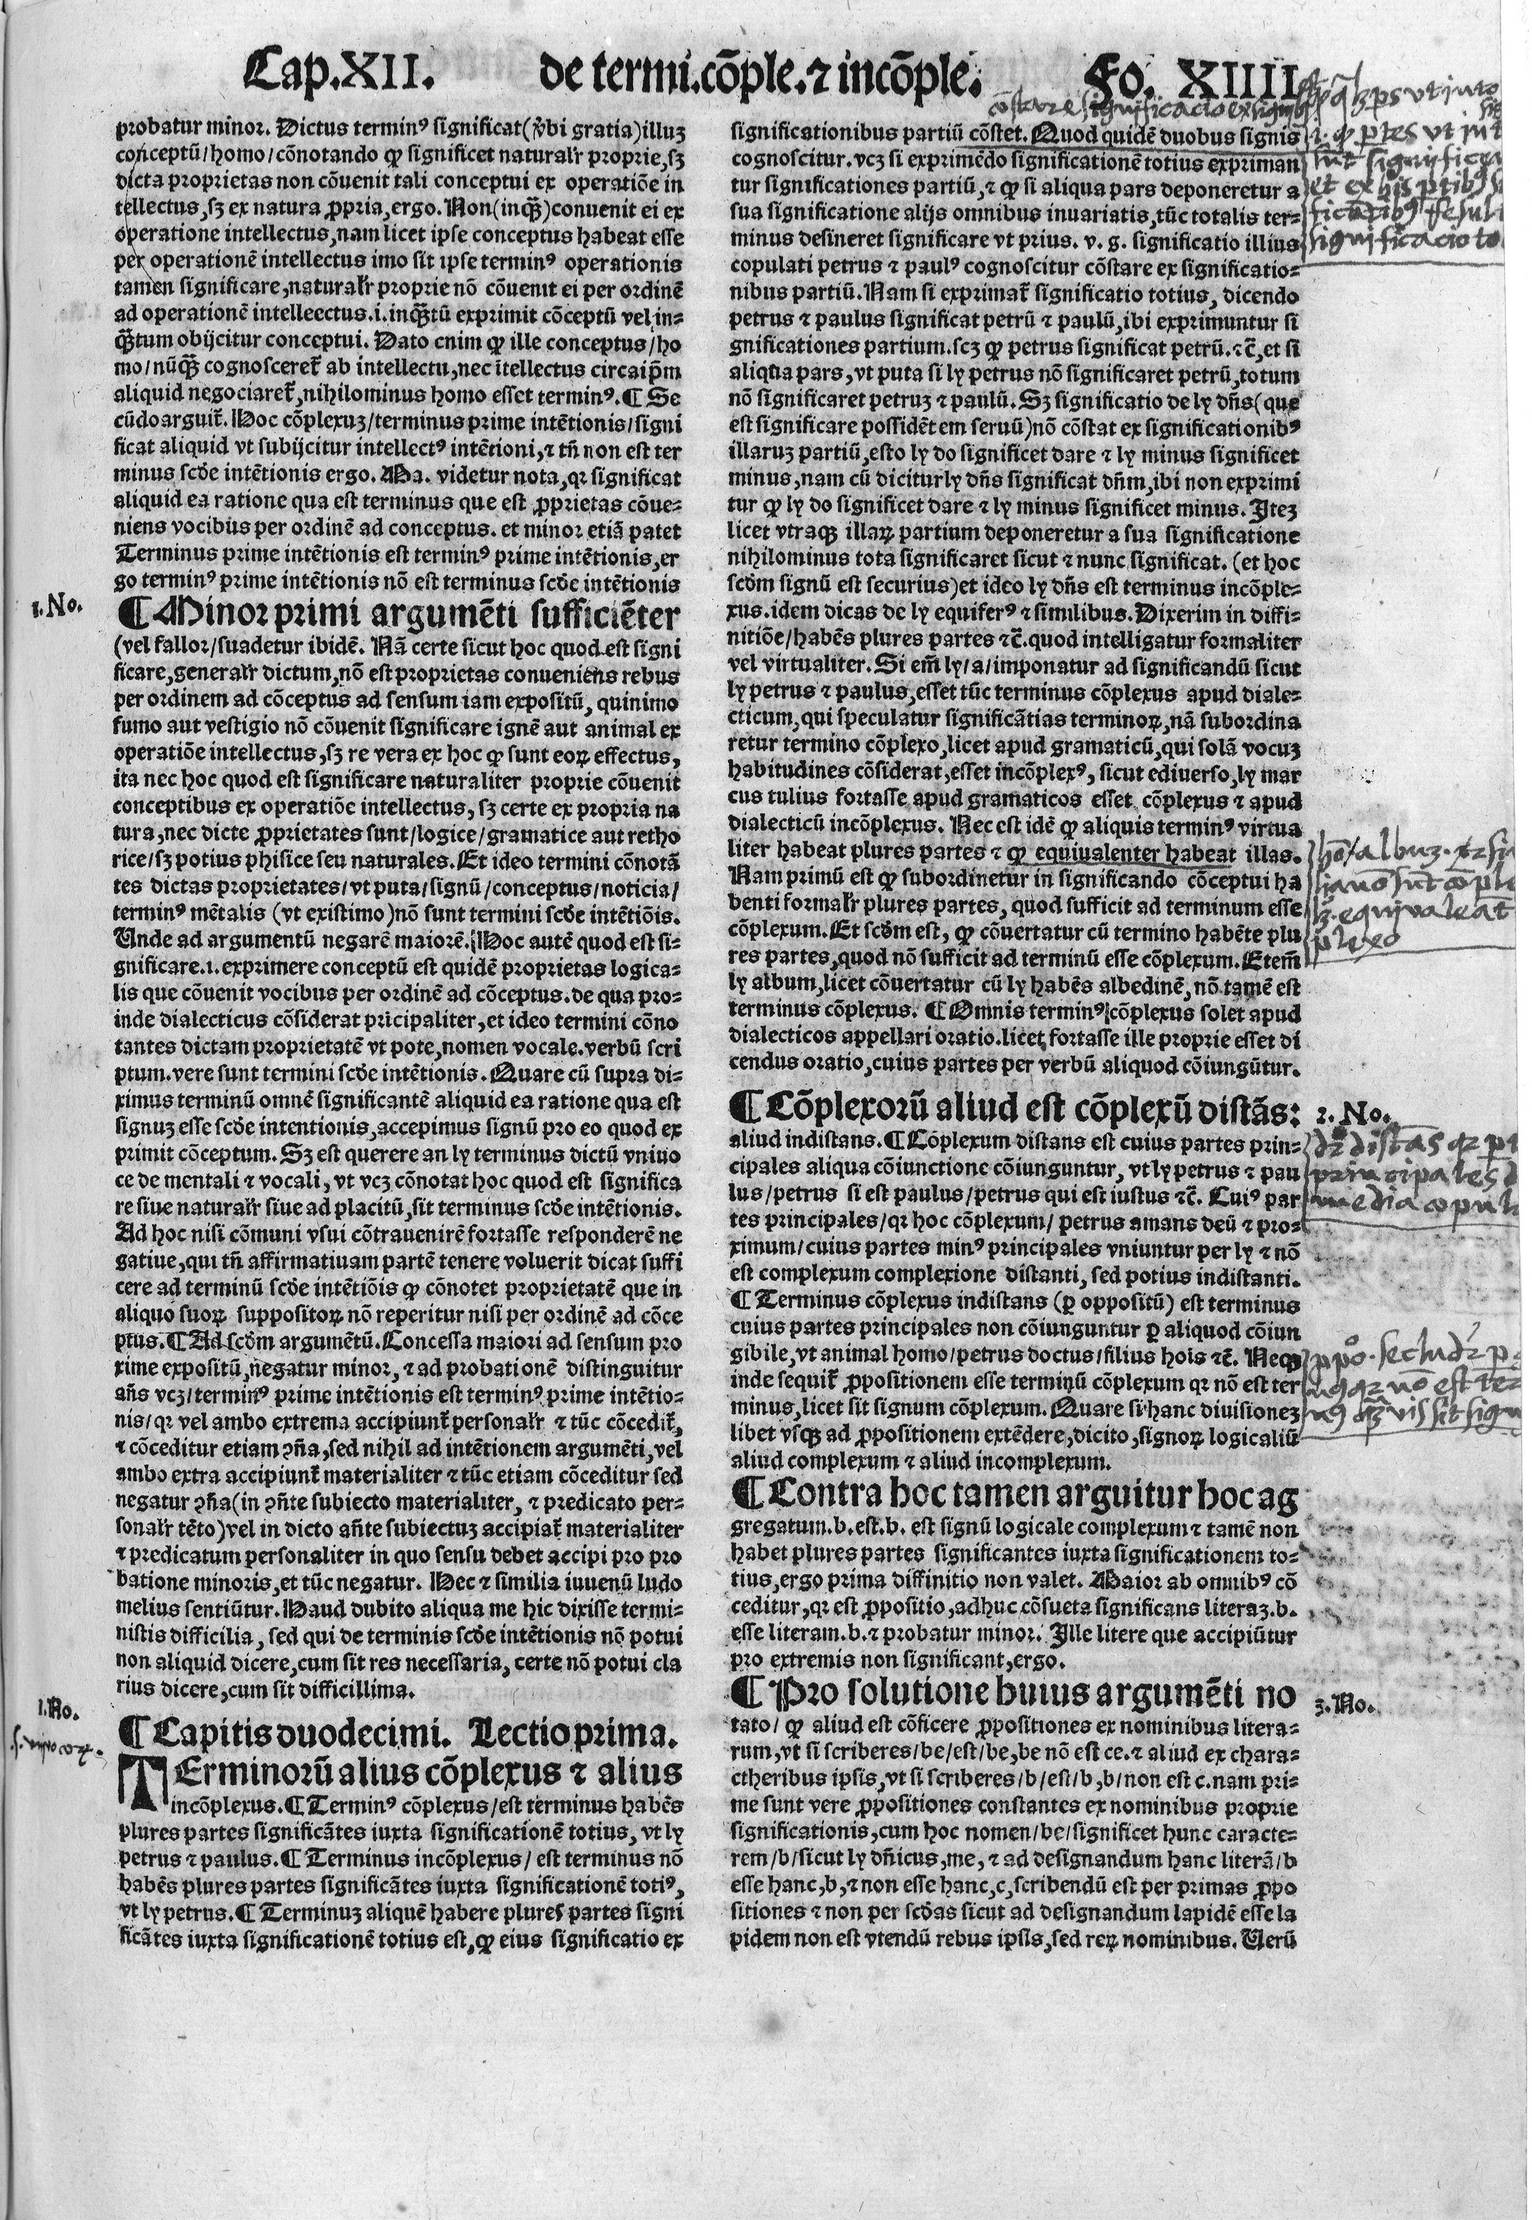 Cap.XII. de termi.cõple.⁊ incõple. Fo. XIIII
probatur minor. Dictus terminꝰ significat(v̄bi gratia)illuȝ
conceptū/homo/cōnotando ꝙ significet naturalr̄ proprie,sȝ
dicta proprietas non cōuenit tali conceptui ex operatiōe in
tellectus,sȝ ex natura ꝓpria,ergo. Non(inqȝ̄)conuenit ei ex
operatione intellectus,nam licet ipse conceptus habeat esse
per operationē intellectus imo sit ipse terminꝰ operationis
tamen significare,naturalr̄ proprie nō cōuenit ei per ordinē
ad operationē intelleectus.i.inqȝ̄tū exprimit cōceptū vel in-
qȝ̄tum obijcitur conceptui. Dato enim ꝙ ille conceptus/ho
mo/nūqȝ̄ cognosceret̄ ab intellectu,nec ītellectus circa ip̄m
aliquid negociaret̄,nihilominus homo esset terminꝰ.¶Se
cūdo arguit̄. Hoc cōplexuȝ/terminus prime intētionis/signi
ficat aliquid vt subijcitur intellectꝰ intētioni,⁊ tn̄ non est ter
minus scd̄e intētionis ergo. Ma. videtur nota,qr significat
aliquid ea ratione qua est terminus que est ꝓprietas cōue-
niens vocibus per ordinē ad conceptus. et minor etiā patet
Terminus prime intētionis est terminꝰ prime intētionis,er
go terminꝰ prime intētionis nō est terminus scd̄e intētionis
1.No.
¶Minor primi argumēti sufficiēter
(vel fallor/suadetur ibidē. Nā certe sicut hoc quod est signi
ficare,generalr̄ dictum,nō est proprietas conueniens rebus
per ordinem ad cōceptus ad sensum iam expositū, quinimo
fumo aut vestigio nō cōuenit significare ignē aut animal ex
operatiōe intellectus,sȝ re vera ex hoc ꝙ sunt eoꝝ effectus,
ita nec hoc quod est significare naturaliter proprie cōuenit
conceptibus ex operatiōe intellectus, sȝ certe ex propria na
tura,nec dicte ꝓprietates sunt/logice/gramatice aut retho
rice/sȝ potius phisice seu naturales.Et ideo termini cōnotā
tes dictas proprietates/vt puta/signū/conceptus/noticia/
terminꝰ mētalis (vt existimo)nō sunt termini scd̄e intētiōis.
Unde ad argumentū negarē maiorē. Hoc autē quod est si-
gnificare.i.exprimere conceptū est quidē proprietas logica-
lis que cōuenit vocibus per ordinē ad cōceptus.de qua pro-
inde dialecticus cōsiderat pricipaliter,et ideo termini cōno
tantes dictam proprietatē vt pote,nomen vocale.verbū scri
ptum.vere sunt termini scd̄e intētionis. Quare cū supra di-
ximus terminū omnē significantē aliquid ea ratione qua est
signuȝ esse scd̄e intentionis,accepimus signū pro eo quod ex
primit cōceptum. Sȝ est querere an ly terminus dictū vniuo
ce de mentali ⁊ vocali, vt vcȝ cōnotat hoc quod est significa
re siue naturalr̄ siue ad placitū,sit terminus scd̄e intētionis.
Ad hoc nisi cōmuni vsui cōtrauenirē fortasse responderē ne
gatiue,qui tn̄ affirmatiuam partē tenere voluerit dicat suffi
cere ad terminū scd̄e intētiōis ꝙ cōnotet proprietatē que in
aliquo suoꝝ suppositoꝝ nō reperitur nisi per ordinē ad cōce
ptus.¶Ad scd̄m argumētū.Concessa maiori ad sensum pro
xime expositū,negatur minor, ⁊ ad probationē distinguitur
an̄s vcȝ/terminꝰ prime intētionis est terminꝰ prime intētio-
nis/qr vel ambo extrema accipiunt̄ personalr̄ ⁊ tūc cōcedit̄,
⁊ cōceditur etiam ꝯn̄a,sed nihil ad intētionem argumēti,vel
ambo extra accipiunt̄ materialiter ⁊ tūc etiam cōceditur sed
negatur ꝯn̄a(in ꝯn̄te subiecto materialiter, ⁊ predicato per-
sonalr̄ tēto)vel in dicto an̄te subiectuȝ accipiat̄ materialiter
⁊ predicatum personaliter in quo sensu debet accipi pro pro
batione minoris,et tūc negatur. Hec ⁊ similia iuuenū ludo
melius sentiūtur.Haud dubito aliqua me hic dixisse termi-
nistis difficilia, sed qui de terminis scd̄e intētionis nō potui
non aliquid dicere,cum sit res necessaria, certe nō potui cla
rius dicere,cum sit difficillima.
1.No.
¶Capitis duodecimi. Lectio prima.
TErminorū alius cōplexus ⁊ alius
incōplexus.¶Terminꝰ cōplexus/est terminus habēs
plures partes significātes iuxta significationē totius, vt ly
petrus ⁊ paulus.¶Terminus incōplexus/ est terminus nō
habēs plures partes significātes iuxta significationē totiꝰ,
vt ly petrus.¶Terminuȝ aliquē habere plures partes signi
ficātes iuxta significationē totius est,ꝙ eius significatio ex
significationibus partiū cōstet. Quod quidē duobus signis
cognoscitur.vcȝ si exprimēdo significationē totius expriman
tur significationes partiū,⁊ ꝙ si aliqua pars deponeretur a
sua significatione alijs omnibus inuariatis,tūc totalis ter-
minus desineret significare vt prius. v. g. significatio illius
copulati petrus ⁊ paulꝰ cognoscitur cōstare ex significatio-
nibus partiū. Nam si exprimat̄ significatio totius, dicendo
petrus ⁊ paulus significat petrū ⁊ paulū,ibi exprimuntur si
gnificationes partium.scȝ ꝙ petrus significat petrū.⁊c̄,et si
aliqua pars,vt puta si ly petrus nō significaret petrū,totum
nō significaret petruȝ ⁊ paulū. Sȝ significatio de ly dn̄s(que
est significare possidētem seruū)nō cōstat ex significationibꝰ
illaruȝ partiū,esto ly do significet dare ⁊ ly minus significet
minus,nam cū dicitur ly dn̄s significat dn̄m,ibi non exprimi
tur ꝙ ly do significet dare ⁊ ly minus significet minus. Iteȝ
licet vtraqȝ illaꝝ partium deponeretur a sua significatione
nihilominus tota significaret sicut ⁊ nunc significat. (et hoc
scd̄m signū est securius)et ideo ly dn̄s est terminus incōple-
xus.idem dicas de ly equiferꝰ ⁊ similibus. Dixerim in diffi-
nitiōe/habēs plures partes ⁊c̄.quod intelligatur formaliter
vel virtualiter. Si em̄ ly/a/imponatur ad significandū sicut
ly petrus ⁊ paulus,esset tūc terminus cōplexus apud diale-
cticum,qui speculatur significātias terminoꝝ,nā subordina
retur termino cōplexo,licet apud gramaticū,qui solā vocuȝ
habitudines cōsiderat,esset incōplexꝰ, sicut ediuerso,ly mar
cus tulius fortasse apud gramaticos esset cōplexus ⁊ apud
dialecticū incōplexus. Nec est idē ꝙ aliquis terminꝰ virtua
liter habeat plures partes ⁊ ꝙ equiualenter habeat illas.
Nam primū est ꝙ subordinetur in significando cōceptui ha
benti formalr̄ plures partes, quod sufficit ad terminum esse
cōplexum.Et scd̄m est, ꝙ cōuertatur cū termino habēte plu
res partes,quod nō sufficit ad terminū esse cōplexum. Etem̄
ly album,licet cōuertatur cū ly habēs albedinē, nō tamē est
terminus cōplexus. ¶Omnis terminꝰ cōplexus solet apud
dialecticos appellari oratio.licet fortasse ille proprie esset di
cendus oratio,cuius partes per verbū aliquod cōiungūtur.
¶Cōplexorū aliud est cōplexū distās:
2.No.
aliud indistans.¶Cōplexum distans est cuius partes prin-
cipales aliqua cōiunctione cōiunguntur, vt ly petrus ⁊ pau
lus/petrus si est paulus/petrus qui est iustus ⁊c̄. Cuiꝰ par
tes principales/qr hoc cōplexum/ petrus amans deū ⁊ pro-
ximum/cuius partes minꝰ principales vniuntur per ly ⁊ nō
est complexum complexione distanti, sed potius indistanti.
¶Terminus cōplexus indistans (ꝑ oppositū) est terminus
cuius partes principales non cōiunguntur ꝑ aliquod cōiun
gibile,vt animal homo/petrus doctus/filius hoīs ⁊c̄. Neqȝ
inde sequit̄ ꝓpositionem esse terminū cōplexum qr nō est ter
minus,licet sit signum cōplexum. Quare si hanc diuisioneȝ
libet vsqȝ ad ꝓpositionem extēdere,dicito,signoꝝ logicaliū
aliud complexum ⁊ aliud incomplexum.
¶Contra hoc tamen arguitur hoc ag
gregatum.b.est.b. est signū logicale complexum ⁊ tamē non
habet plures partes significantes iuxta significationem to-
tius,ergo prima diffinitio non valet. Maior ab omnibꝰ cō
ceditur,qr est ꝓpositio,adhuc cōsueta significans literaȝ.b.
esse literam.b.⁊ probatur minor. Ille litere que accipiūtur
pro extremis non significant,ergo.
¶Pro solutione huius argumēti no
3.No.
tato/ ꝙ aliud est cōficere ꝓpositiones ex nominibus litera-
rum,vt si scriberes/be/est/be,be nō est ce.⁊ aliud ex chara-
ctheribus ipsis,vt si scriberes/b/est/b,b/non est c.nam pri-
me sunt vere ꝓpositiones constantes ex nominibus proprie
significationis,cum hoc nomen/be/significet hunc caracte-
rem/b/sicut ly dn̄icus,me, ⁊ ad designandum hanc literā/b
esse hanc,b,⁊ non esse hanc,c,scribendū est per primas ꝓpo
sitiones ⁊ non per scd̄as sicut ad designandum lapidē esse la
pidem non est vtendū rebus ipsis,sed reꝝ nominibus. Uerū